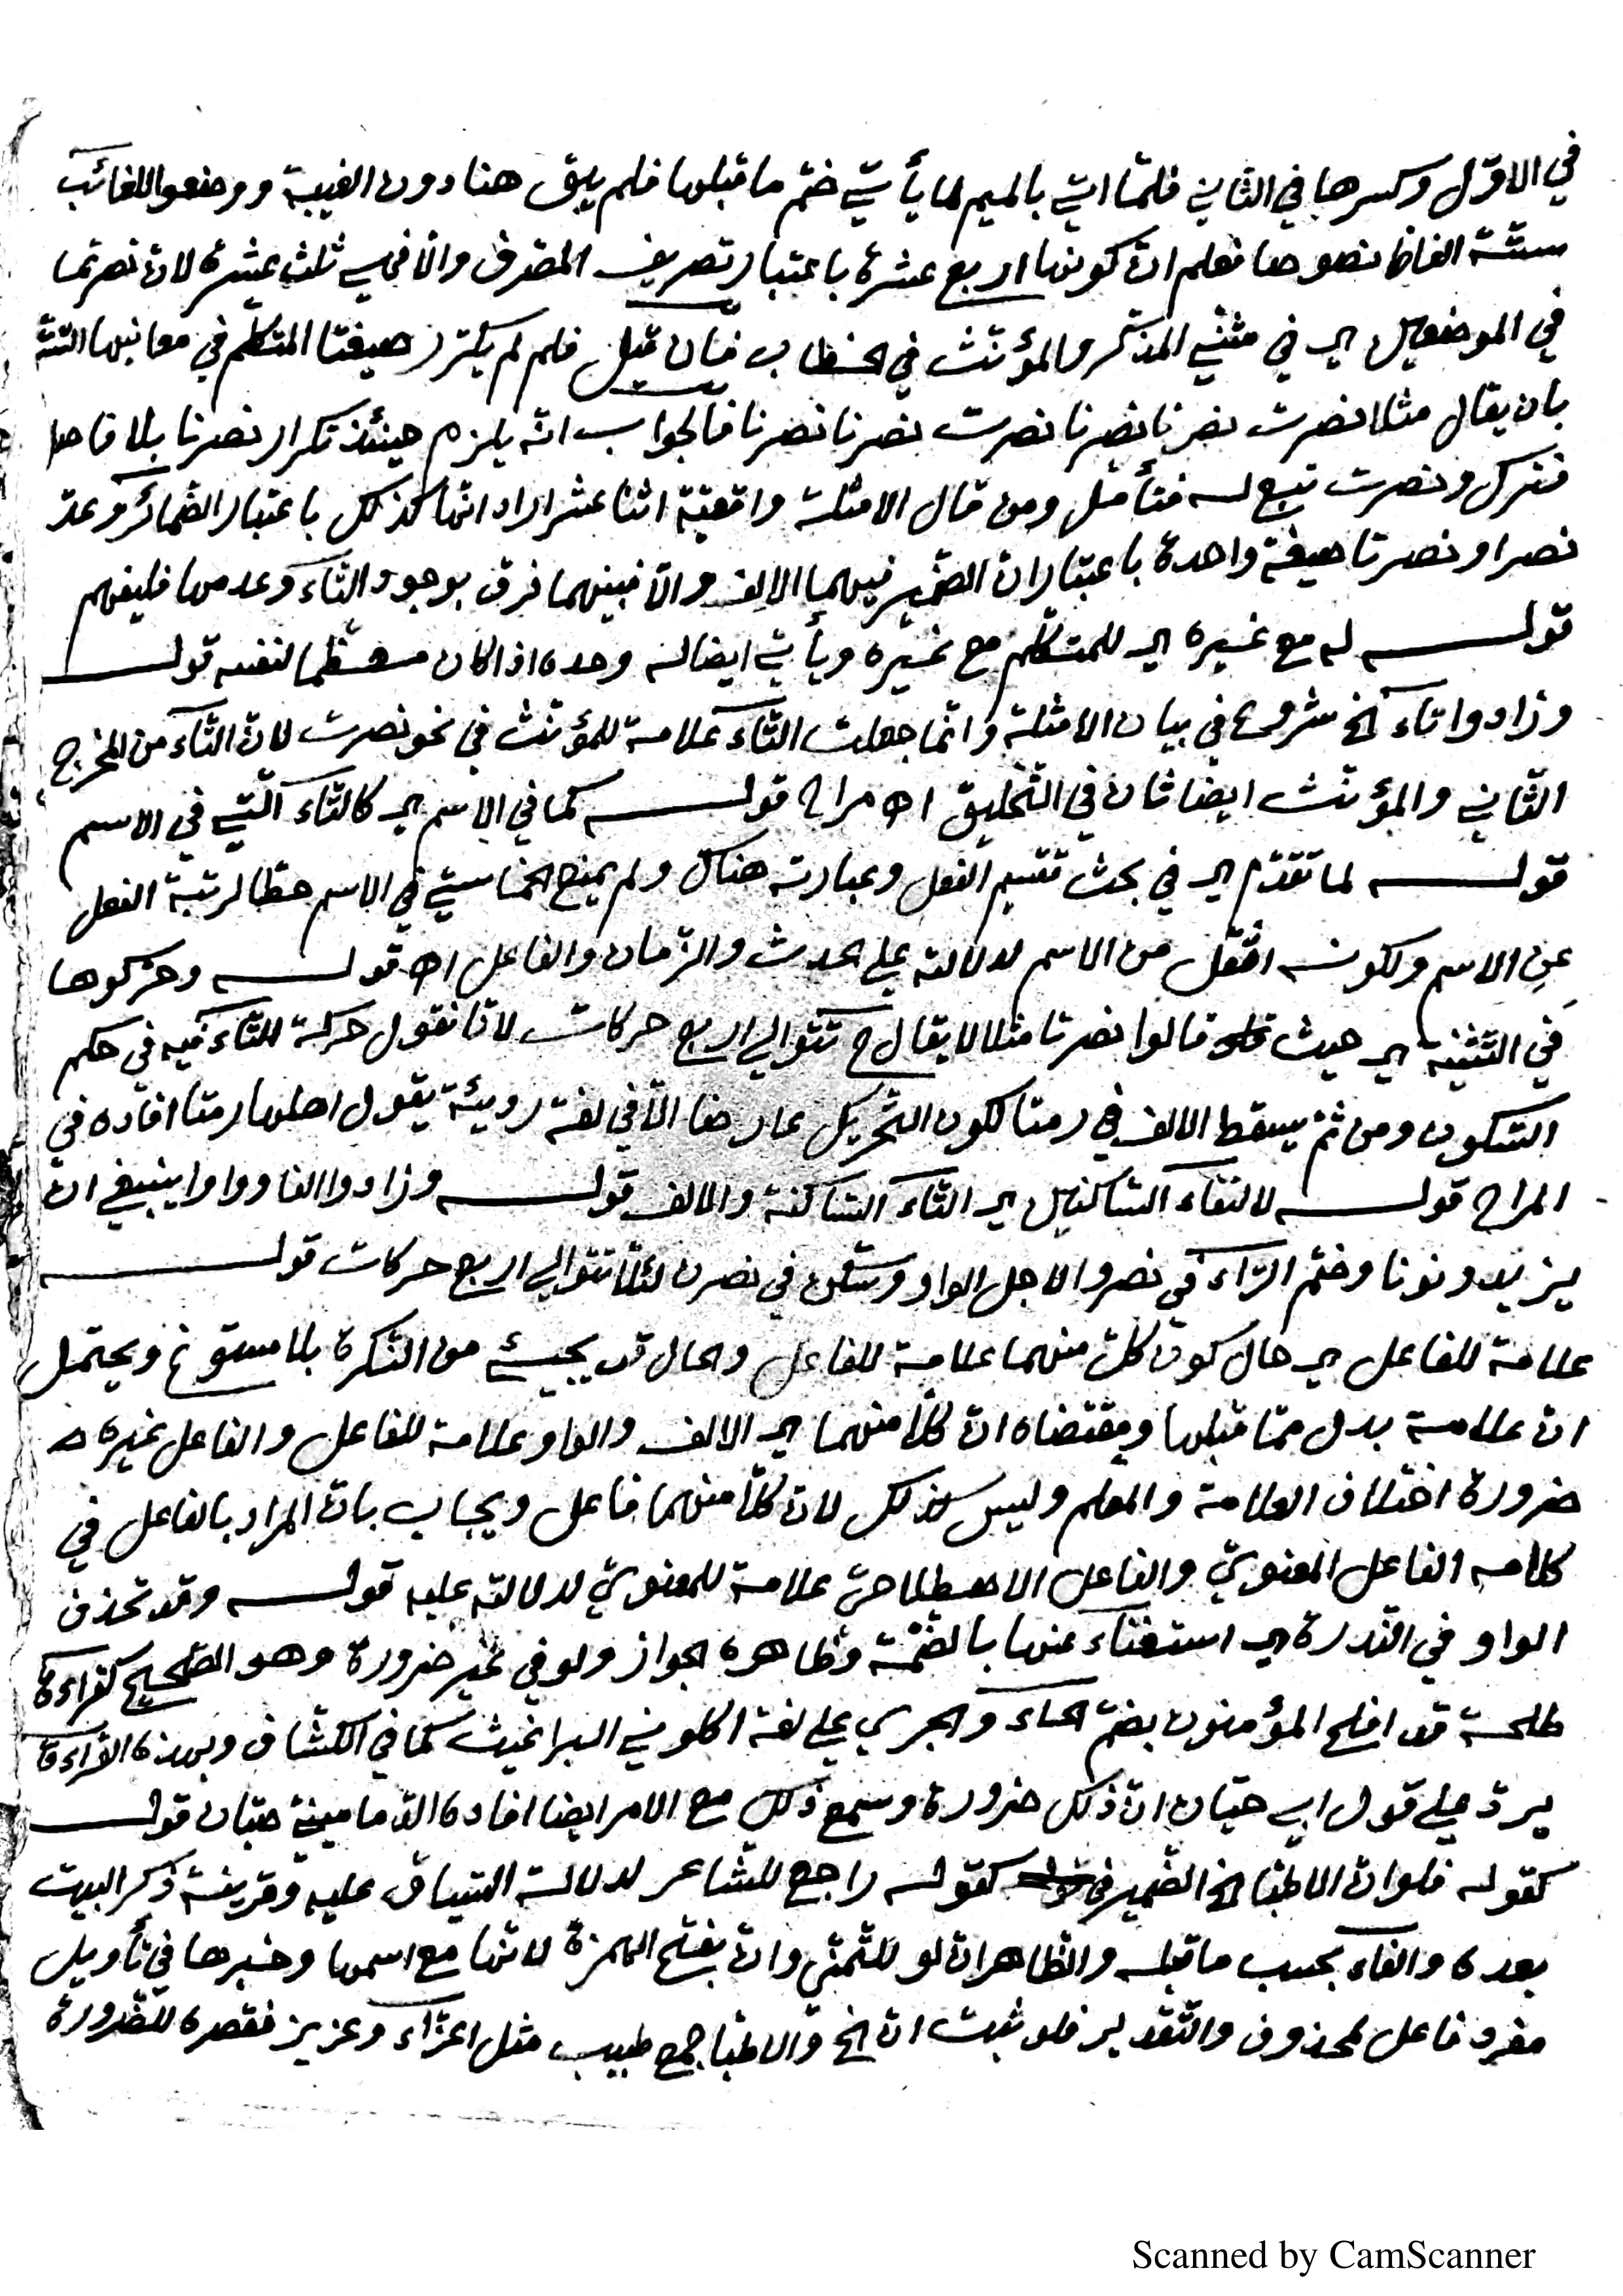 في الاوّل وكسرها في الثاني فلمّا اتي بالميم لما يأتي ضمّ ما قبلها فلم يبق هنا دون الغيبة ووضعوا للغائب
ستّة الفاظ نصوصا فعلم انّ كونها اربع عشرة باعتبار تصريف المصرف والّا فهي ثلث عشرة لانّ نصرتما
في الموضعين اي في مثنّي المذكّر والمؤنّث في الخطاب فان قيل فلم لم يكرّر صيغتا المتكلّم في معانيها الستّة
بان يقال مثلا نصرت نصرنا نصرنا نصرت نصرنا نصرنا فالجواب انّه يلزم حينئذ تكرار نصرنا بلا فاصل
فترك ونصرت تبع له فتأمّل ومن قال الامثلة واقعيّة اثنا عشر اراد انّها كذلك باعتبار الضمائر وعدّ
نصرا ونصرتا صيغة واحدة باعتبار ان الضمير فيهما الالف والّا فبينهما فرق بوجود التاء وعدمها فليفهم
قوله له مع غيره اي للمتكلّم مع غيره ويأتي ايضا له وحده اذا كان معظّما لنفسه قوله
وزادوا تاء الخ شروع في بيان الامثلة وانّما جعلت التاء علامة للمؤنّث في نحو نصرت لانّ التاء من المخرج
الثاني والمؤنّث ايضا ثان في التخليق اه مراح قوله كما في الاسم اي كالتاء الّتي في الاسم
قوله لما تقدّم اي في بحث تقسيم الفعل وعبارته هناك ولم يمنع الخماسيّ في الاسم حطّا لرتبة الفعل
عن الاسم ولكونه اثقل من الاسم لدلالته علي الحدث والزمان والفاعل اه قوله وحرّكوها
في التثنية اي حيث قالوا نصرتا مثلا لا يقال ح تتوالي اربع حركات لانا نقول حركة التاء فيه في حكم
السّكون ومن ثمّ يسقط الالف في رمتا لكون التّحريك عارضا الّا في لغة رديئة يقول اهلها رمتا افاده في
المراح قوله لالتقاء الساكنين اي التاء الساكنة والالف قوله وزادوا الفا وواوا ينبغي ان
يزيد ونونا وضمّ الرّاء في نصروا لاجل الواو وسكّن في نصرن لئلّا تتوالي اربع حركات قوله
علامة للفاعل اي حال كون كلّ منهما علامة للفاعل والحال قد يجيئ من النّكرة بلا مسوّغ ويحتمل
انّ علامة بدل ممّا قبلها ومقتضاه انّ كلّا منهما اي الالف والواو علامة للفاعل والفاعل غيره
ضرورة اختلاف العلامة والمعلم وليس كذلك لانّ كلّا منهما فاعل ويجاب بانّ المراد بالفاعل في
كلامه الفاعل المعنويّ والفاعل الاصطلاحيّ علامة للمعنويّ لدلالته عليه قوله وقد تحذف
الواو في النّدرة اي استغناء عنها بالضّمّة وظاهره الجواز ولو في غير ضرورة وهو الصّحيح كقراءة
طلحة قد افلح المؤمنون بضمّ الحاء والجري علي لغة اكلوني البراغيث كما في الكشّاف وبهذه القراءة
يردّ علي قول ابي حيّان انّ ذلك ضرورة وسمع ذلك مع الامر ايضا افاده الدّمامينيّ حيّان قوله
كقوله فلو انّ الاطبّا الخ الضّمير في كقوله راجع للشاعر لدلالة السّياق عليه وقرينة ذكر البيت
بعده والفاء بحسب ما قبله والظاهر ان لو للتّمنّي وانّ بفتح الهمزة لانّها مع اسمها وخبرها في تأويل
مفرد فاعل لمحذوف والتّقدير فلو ثبت انّ الخ والاطبّا جمع طبيب مثل اعزّاء وعزيز فقصره للضّرورة
Scanned by CamScanner